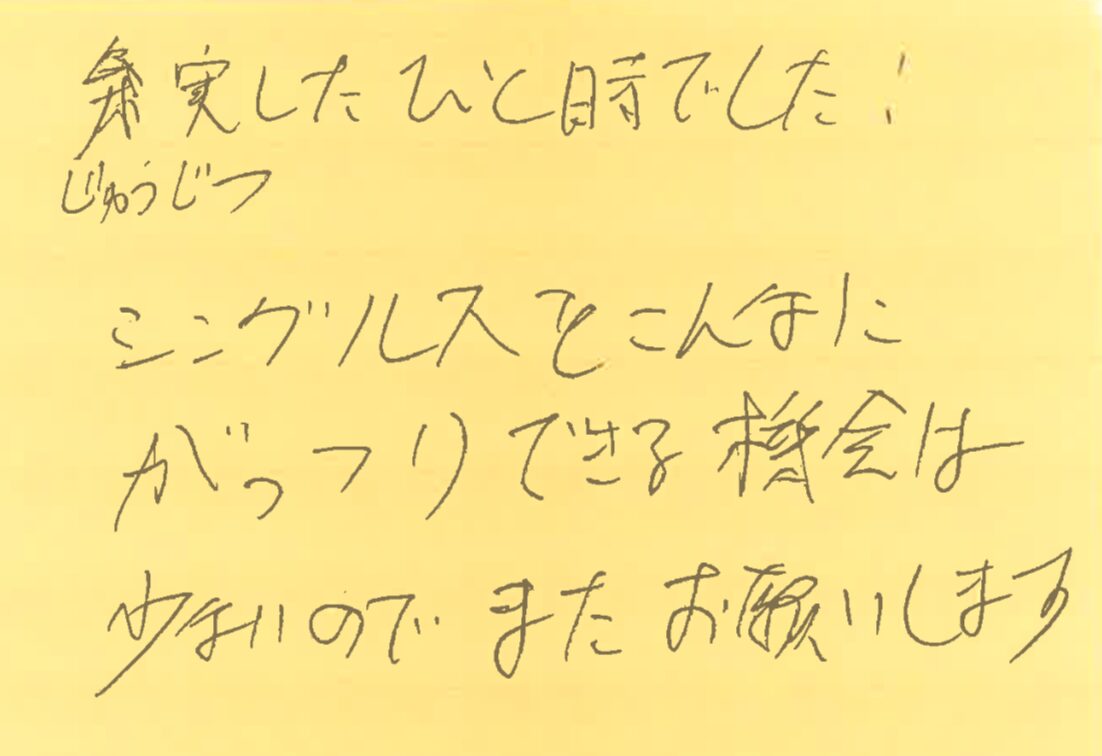 充実したひと時でした!
じゅうじつ
シングルスをこんなに
がっつりできる機会は
少ないので またお願いします